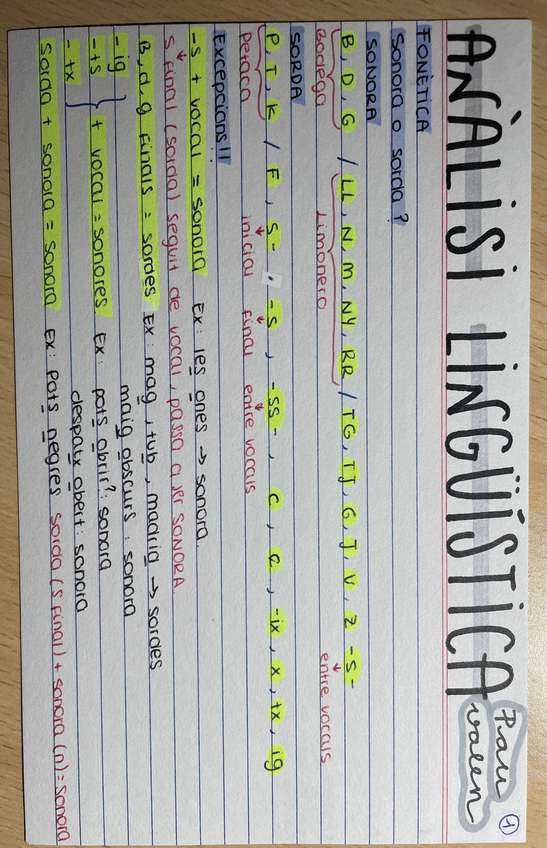 ANÀLISI LINGÜÍSTICA
Pau
valen
1
FONÈTICA
Sonora o sorda?
SONORA
B, D, G / LL, N, M, NY, RR / TG, TJ, G, J, V, Z -S-
Bodega limonero entre vocals
SORDA
P, T, K / F, S-, -S, -SS-, C, Ç, -ix, x, tx, ig
Petaca inicial final entre vocals
Excepcions!!
-S + vocal = sonora Ex: les ones → sonora.
S final (sorda) seguit de vocal, passa a ser SONORA
B, d, g finals = sordes Ex: mag, tub, madrid → sordes
-ig maig obscurs: sonora
-ts + vocal = sonores Ex: pots obrir?: sonora
-tx despatx obert: sonora
Sorda + sonora = sonora Ex: Pots negres sorda (s final) + sonora (n) = sonora